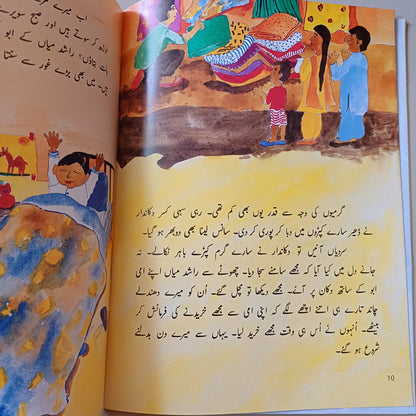 اب میرے
اوڑھ کر سوتے ہیں اور صبح سویرے
بات بتاؤں؟ راشد میاں کے ابو
ہیں۔ میں بھی بڑے غور سے سنتا
گرمیوں کی وجہ سے قدر یوں بھی کم تھی۔ رہی سہی کسر دکاندار
نے ڈھیر سارے کپڑوں میں دبا کر پوری کر دی۔ سانس لینا بھی دوبھر ہو گیا۔
سردیاں آئیں تو دکاندار نے سارے گرم کپڑے باہر نکالے۔ نہ
جانے دل میں کیا آیا کہ مجھے سامنے سجا دیا۔ چھوٹے سے راشد میاں اپنے امی
ابو کے ساتھ دکان پر آئے۔ مجھے دیکھا تو مچل گئے۔ اُن کو میرے دھندلے
چاند تارے ہی اتنے اچھے لگے کہ اپنی امی سے مجھے خریدنے کی فرمائش کر
بیٹھے۔ اُنہوں نے اُسی وقت مجھے خرید لیا۔ یہاں سے میرے دن بدلنے
شروع ہو گئے۔
10